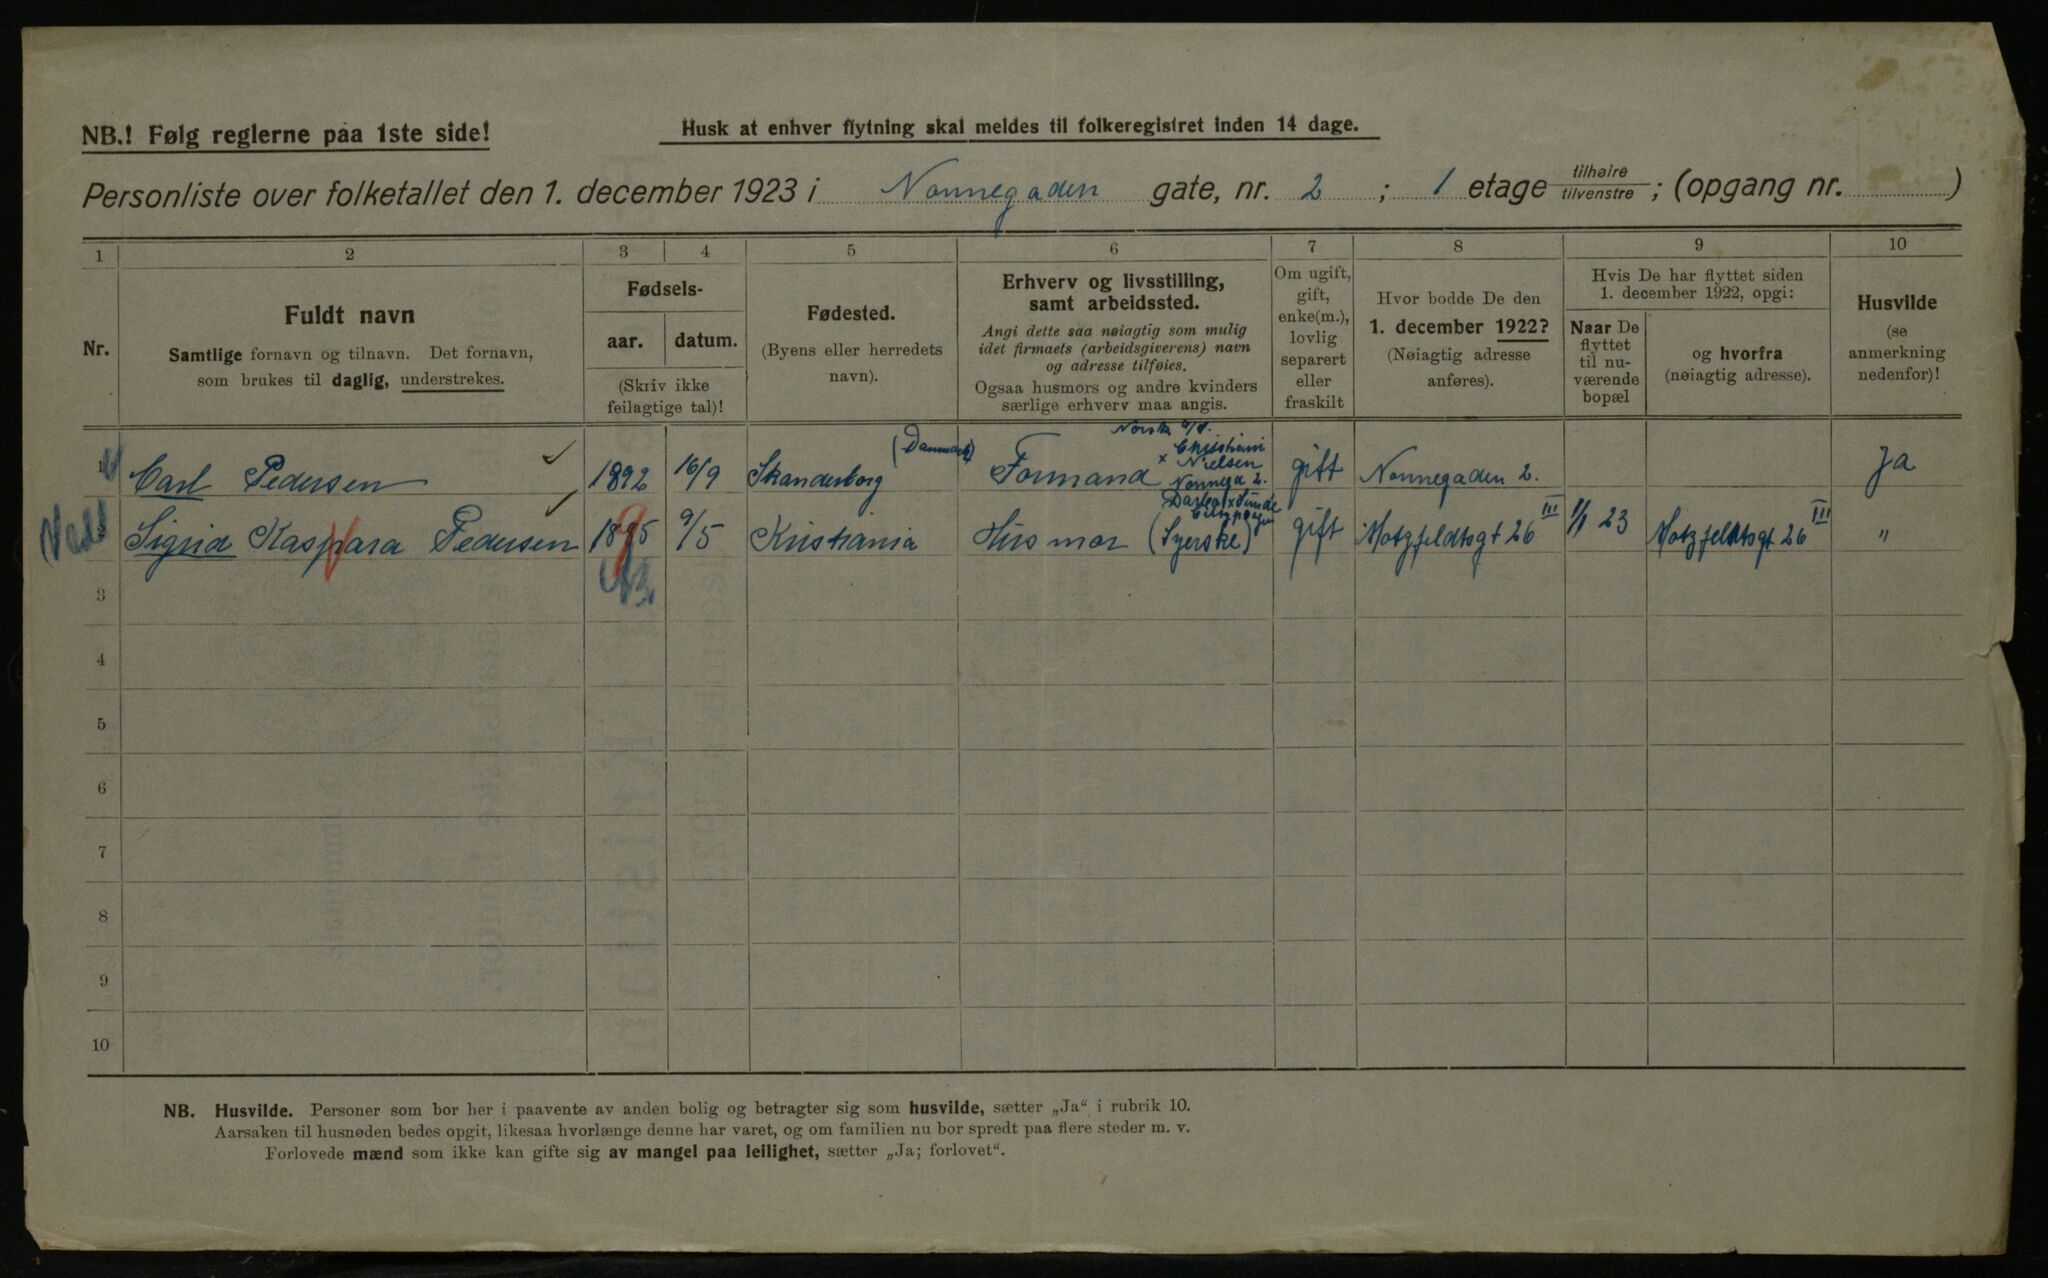 NB.! Følg reglerne paa 1ste side!
Husk at enhver flytning skal meldes til folkeregistret inden 14 dage.
Personliste over folketallet den 1. december 1923 i Nonnegaden gate, nr. 2 ; 1 etage tilhøire tilvenstre ; (opgang nr. )
1 2 3 4 5 6 7 8 9 10
Nr.
Fuldt navn
Samtlige fornavn og tilnavn. Det fornavn,
som brukes til daglig, understrekes.
Fødsels-
aar. datum.
(Skriv ikke
feilagtige tal)!
Fødested.
(Byens eller herredets
navn).
Erhverv og livsstilling,
samt arbeidssted.
Angi dette saa nøiagtig som mulig
idet firmaets (arbeidsgiverens) navn
og adresse tilføies.
Ogsaa husmors og andre kvinders
særlige erhverv maa angis.
Om ugift,
gift,
enke(m.),
lovlig
separert
eller
fraskilt
Hvor bodde De den
1. december 1922?
(Nøiagtig adresse
anføres).
Hvis De har flyttet siden
1. december 1922, opgi:
Naar De
flyttet
til nu-
værende
bopæl
og hvorfra
(nøiagtig adresse).
Husvilde
(se
anmerkning
nedenfor)!
1 Carl Pedersen 1892 16/9 Skanderborg (Danmark) Formand Norsk A/S. Christiani x Nielsen Nonnega 2. gift Nonnegaden 2. Ja
Sigrid Kaspara Pedersen 1895 9/5 Kristiania Husmor (Syerske) gift Motzfeldtsgt 26 III 1/1 23 Motzfeldtsgt 26 III "
93
3
4
5
6
7
8
9
10
NB. Husvilde. Personer som bor her i paavente av anden bolig og betragter sig som husvilde, sætter „Ja“ i rubrik 10.
Aarsaken til husnøden bedes opgit, likesaa hvorlænge denne har varet, og om familien nu bor spredt paa flere steder m. v.
Forlovede mænd som ikke kan gifte sig av mangel paa leilighet, sætter „Ja; forlovet“.